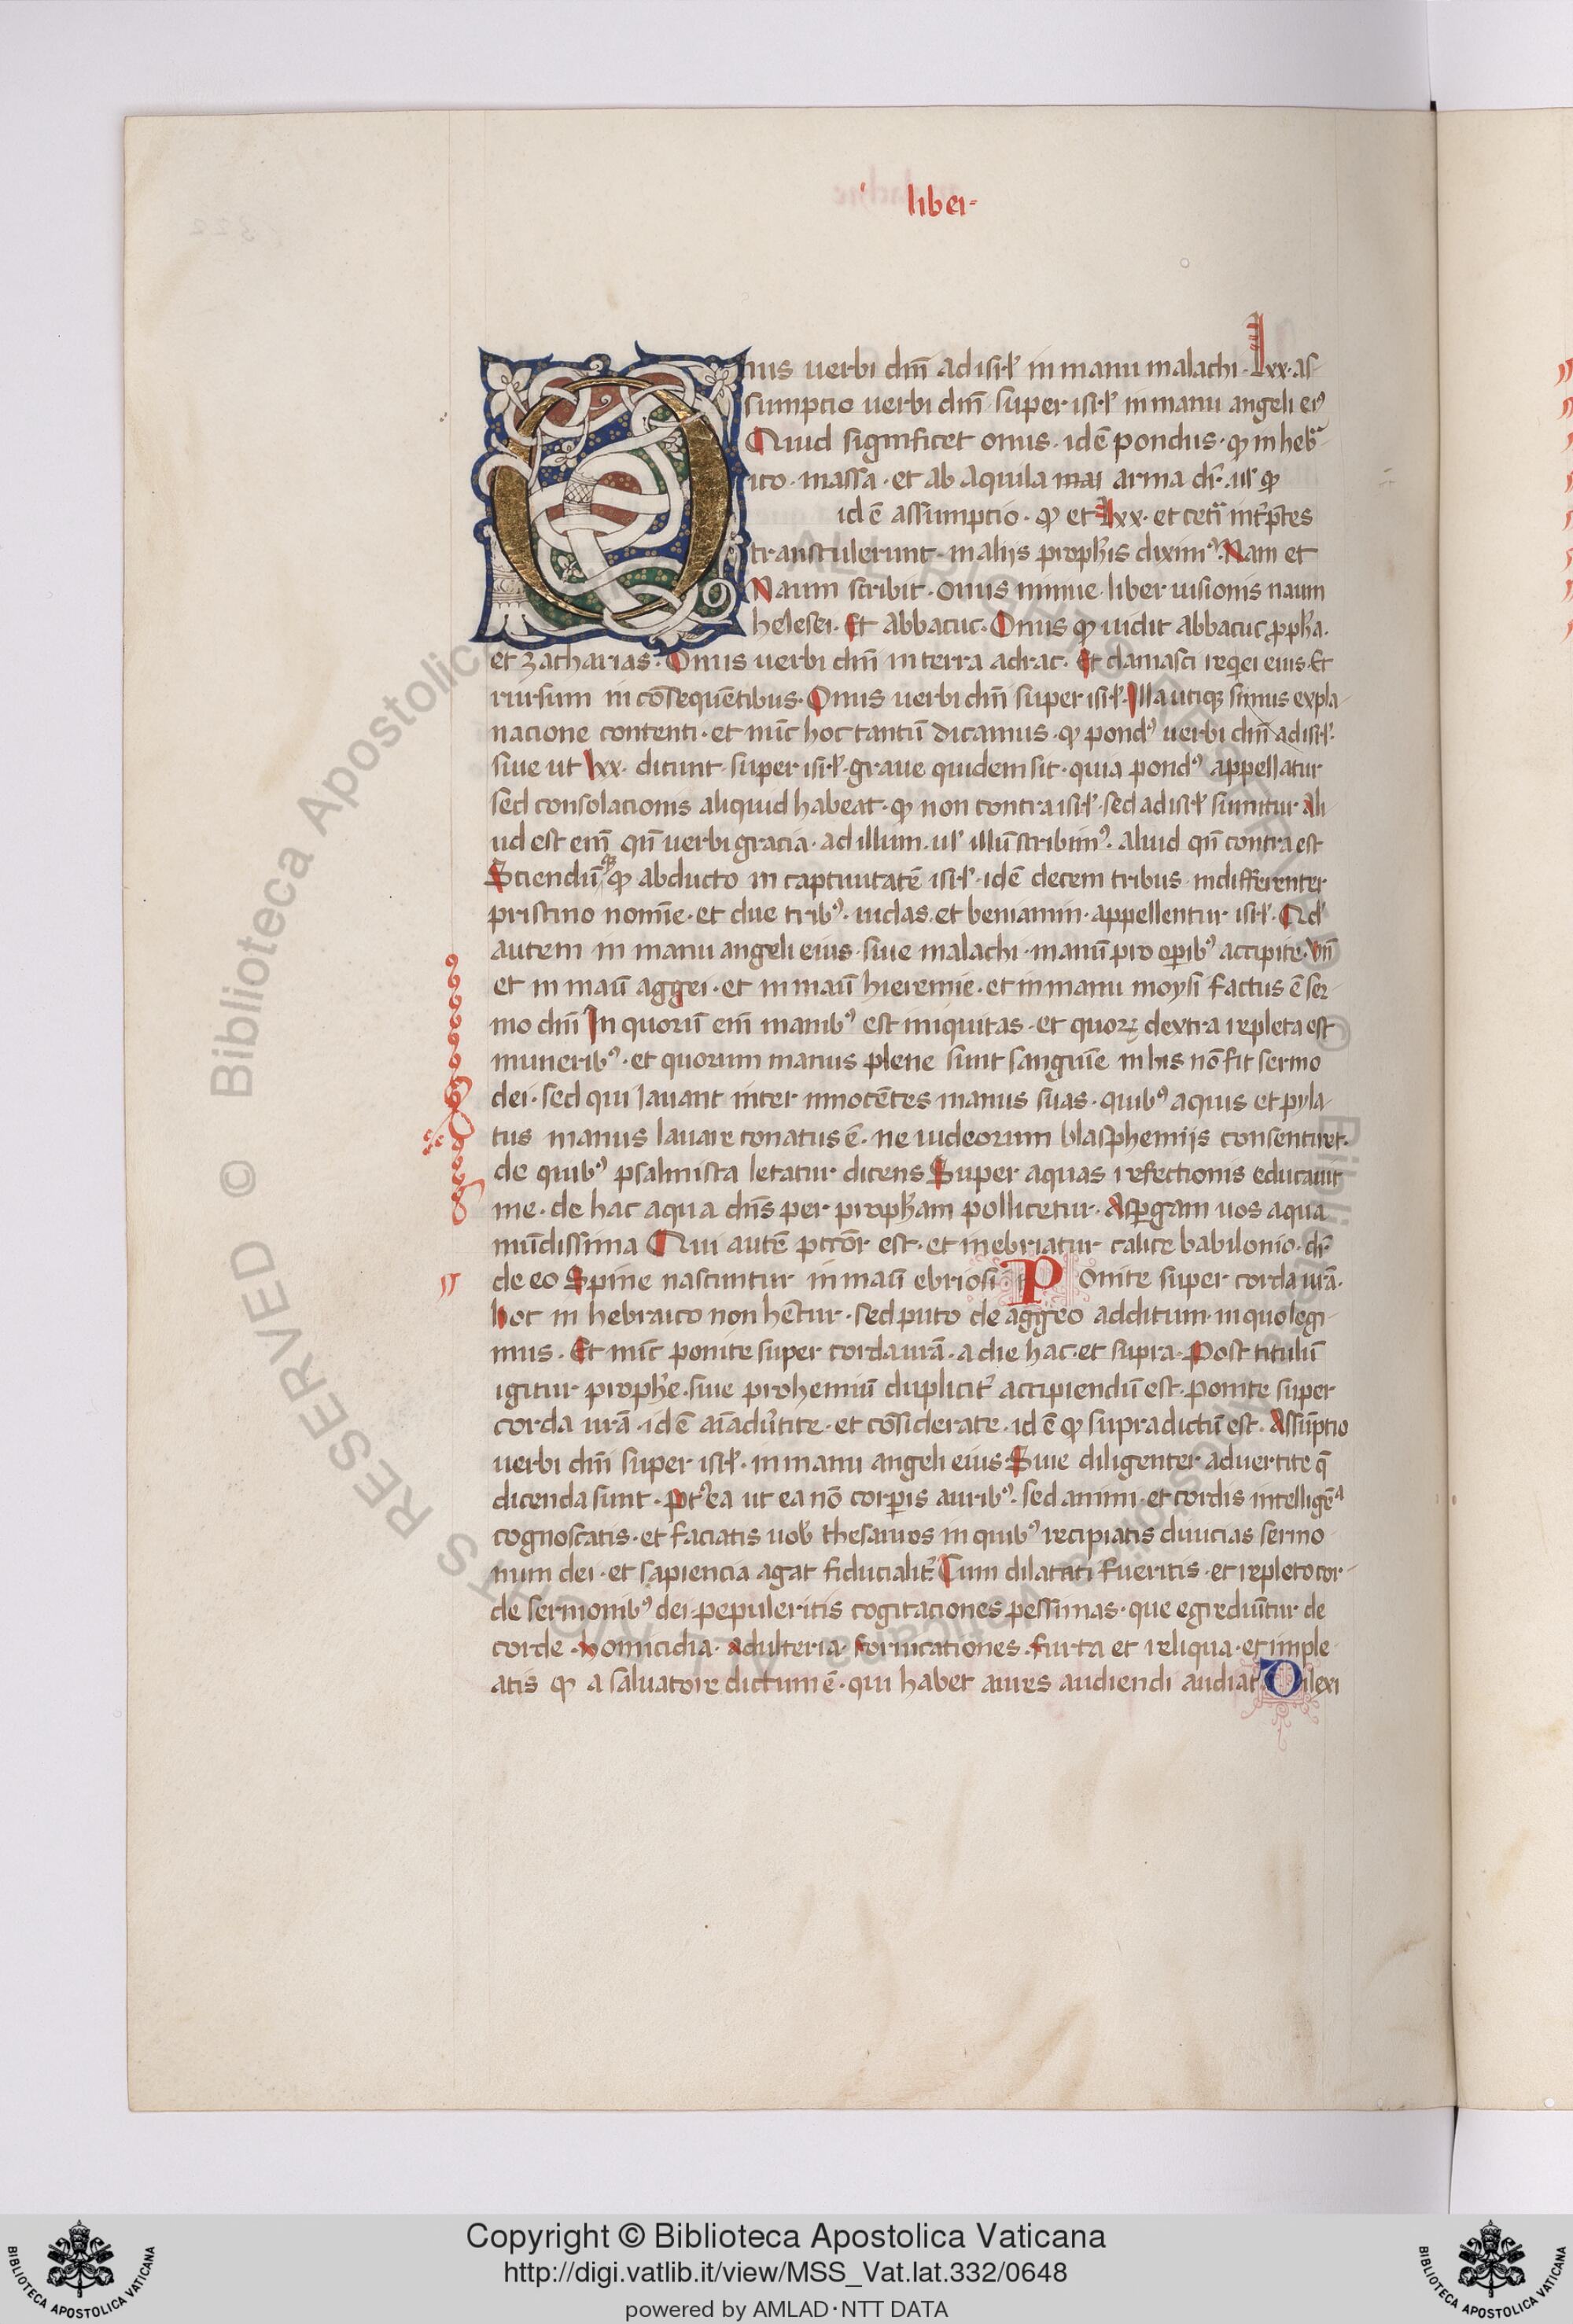 liber
Onus uerbi dñi ad isrl̃ in manu malachi. Lxx. as
sumptio uerbi dñi super isrl̃ in manu angeli eiꝰ
Quid significet onus. id ẽ pondus. qꝫ in heb
ico. massa. et ab aquila arma dr̃. ul̃ qꝫ
id ẽ assumptio. qꝫ et Lxx. et ceti int̃ p̃tes
transtulerunt in alijs prophis diximꝰ. Nam et
Naum scribit. onus niniue. liber uisionis naum
helesei. Et abbacuc. Onus qꝫ uidit abbacuc ppha.
et zacharias. Onus uerbi dñi in terra adrac. Et damasci requei eius. Et
rursum in cõsequẽtibus. Onus uerbi dñi super isrl̃. Illa utiqꝫ simus expla
nacione contenti. et nũc hoc tantũ dicamus. qꝫ pondꝰ uerbi dñi ad isrl̃.
siue ut lxx. dicunt super isrl̃. graue quidem sit. quia pondꝰ appellatur
sed consolacionis aliquid habeat. qꝫ non contra isrl̃. sed ad isrl̃ sumitur Ali
ud est em̃ qñ uerbi gracia. ad illum. ul̃ illũ scribimꝰ. aliud qñ contra est
Sciendũ qꝫ abducto in captiuitatẽ isrl̃. id ẽ decem tribus indifferenter
pristino nomĩe. et due tribꝰ. iudas. et beniamin. appellentur isrl̃. Qd̃
autem in manu angeli eius. siue malachi. manũ pro opibꝰ accipite. Vñ
et in maũ aggei. et in maũ hieremie. et in manu moysi factus ẽ ser
mo dñi In quorũ em̃ manibꝰ est iniquitas. et quorꝫ dextra repleta est
muneribꝰ. et quorum manus plene sunt sanguĩe in his nõ fit sermo
dei. sed qui lauant inter innocẽtes manus suas. quibꝰ aquis et pyla
tus manus lauare conatus ẽ. ne iudeorum blasphemijs consentiret.
de quibꝰ psalmista letatur dicens Super aquas refectionis educauit
me. de hac aqua dñs per propham pollicetur. Aspgam uos aqua
mũdissima Qui autẽ pccõr est. et inebriatur calice babilonio. dr̃
de eo Spine nascuntur in maũ ebriosi Ponite super corda urã.
hoc in hebraico non hẽtur. sed puto de aggeo additum. in quo legi
mus. Et nũc ponite super corda urã. a die hac. et supra. Post titulũ
igitur prophe. siue prohemiũ duplicit̃ accipiendũ est. ponite super
corda urã. id ẽ aĩaduertite. et cõsiderate. id ẽ qꝫ supradictũ est. Assũptio
uerbi dñi super isrl̃. in manu angeli eius Siue diligenter aduertite q̃
dicenda sunt. Pt̃ea ut ea nõ corpis auribꝰ. sed animi. et cordis intelligẽ
cognoscatis. et faciatis uob thesauros in quibꝰ recipiatis diuicias sermo
num dei. et sapiencia agat fiducialit̃. Cum dilatati fueritis. et repleto cor
de sermonibꝰ dei pepuleritis cogitaciones pessimas. que egrediũtur de
corde. homicidia. adulteria. fornicationes. furta et reliqua. et imple
atis qꝫ a saluatore dictum ẽ. qui habet aures audiendi audiat Dilexi
Copyright © Biblioteca Apostolica Vaticana
http://digi.vatlib.it/view/MSS_Vat.lat.332/0648
powered by AMLAD·NTT DATA
BIBLIOTECA APOSTOLICA VATICANA
BIBLIOTECA APOSTOLICA VATICANA